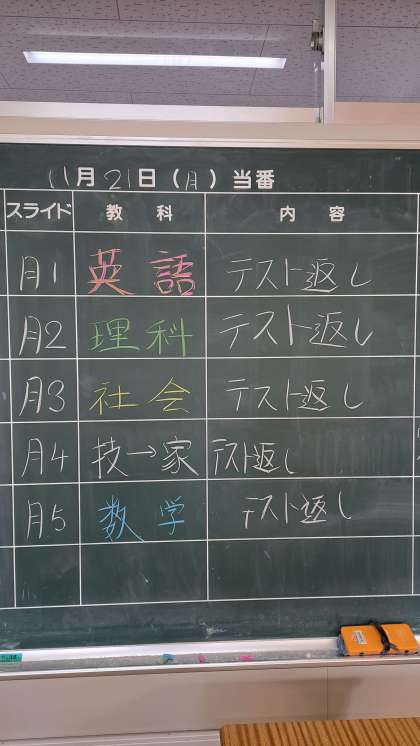 11月21日（月）当番
スライド 教科 内容
月1 英語 テスト返し
月2 理科 テスト返し
月3 社会 テスト返し
月4 技→家 テスト返し
月5 数学 テスト返し